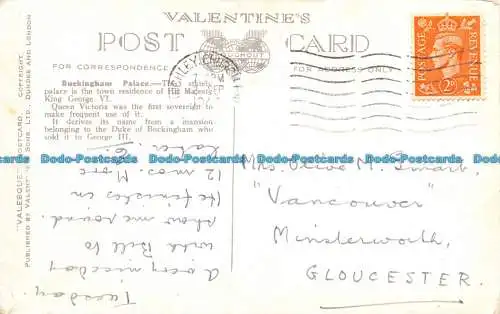 VALENTINE'S
POST CARD
FOR CORRESPONDENCE
FOR ADDRESS ONLY
Buckingham Palace.—The stately
palace is the town residence of His Majesty
King George VI.
Queen Victoria was the first sovereign to
make frequent use of it.
It derives its name from a mansion
belonging to the Duke of Buckingham who
sold it to George III.
"VALESQUE" POSTCARD. COPYRIGHT.
PUBLISHED BY VALENTINE & SONS, LTD., DUNDEE AND LONDON
POSTAGE REVENUE
2D
SEP
Tuesday.
A very nice day
with Bill to
show me round.
He finishes in
12 mos. More
later.
Mrs. Olive M. Smart,
"Vancouver"
Minsterworth,
GLOUCESTER.
Dodo-Postcards Dodo-Postcards Dodo-Postcards Dodo-Postcards